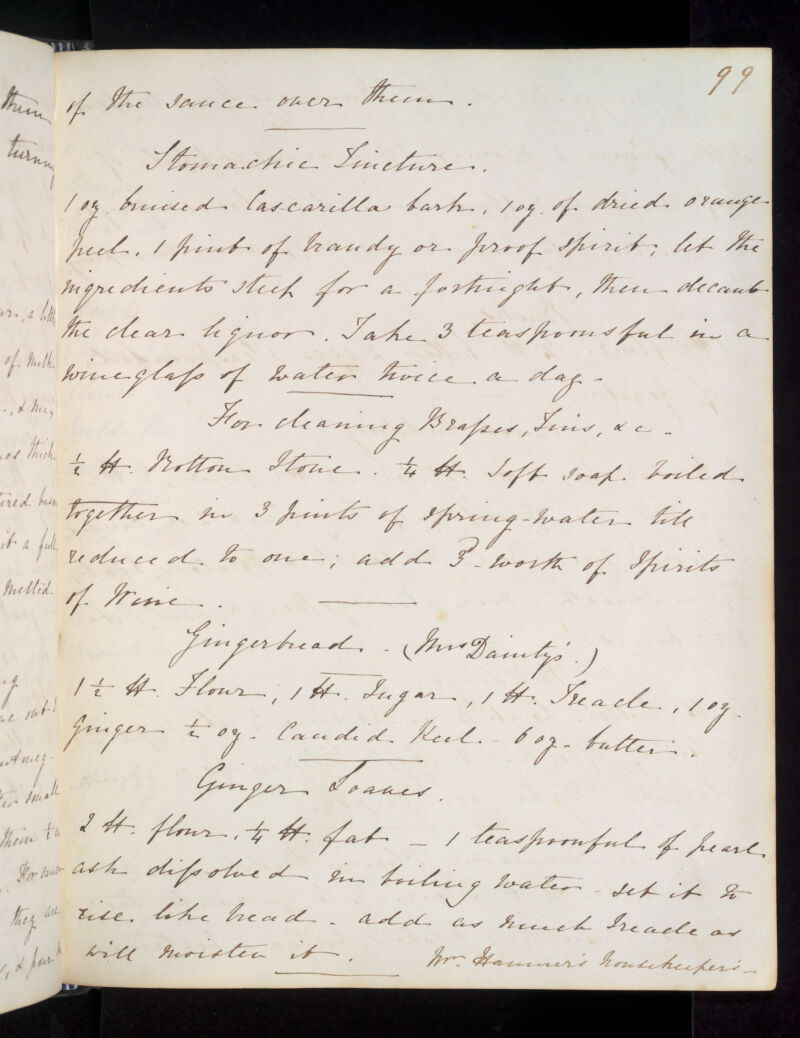 99
of the sauce over them.
Stomachic Tincture.
1 oz bruised Cascarilla bark, 1 oz. of dried orange
peel, 1 pint of brandy or proof spirit; let the
ingredients steep for a fortnight, then decant
the clear liquor. Take 3 teaspoonsful in a
wineglaſs of water twice a day -
For cleaning Braſses, Tins, &c -
½ ℔. Rotton Stone. ¼ ℔. Soft soap boiled
together in 3 pints of spring-water till
reduced to one; add 3ᵈ- worth of Spirits
of Wine.
Gingerbread - (Mrs Dainty's.)
1 ½ ℔. Flour, 1 ℔. Sugar, 1 ℔. Treacle, 1 oz.
Ginger ½ oz - Candid Peel - 6 oz - butter.
Ginger Loaves.
2 ℔. flour, ¼ ℔. fat - 1 teaspoonful of pearl
ash diſsolved in boiling water - set it to
rise like bread - add as much Treacle as
will moisten it. Mr. Hanmer's Housekeeper's -
them
turning
a little
of milk
thick
it a full
Melted
out
small
them ½
For
they are